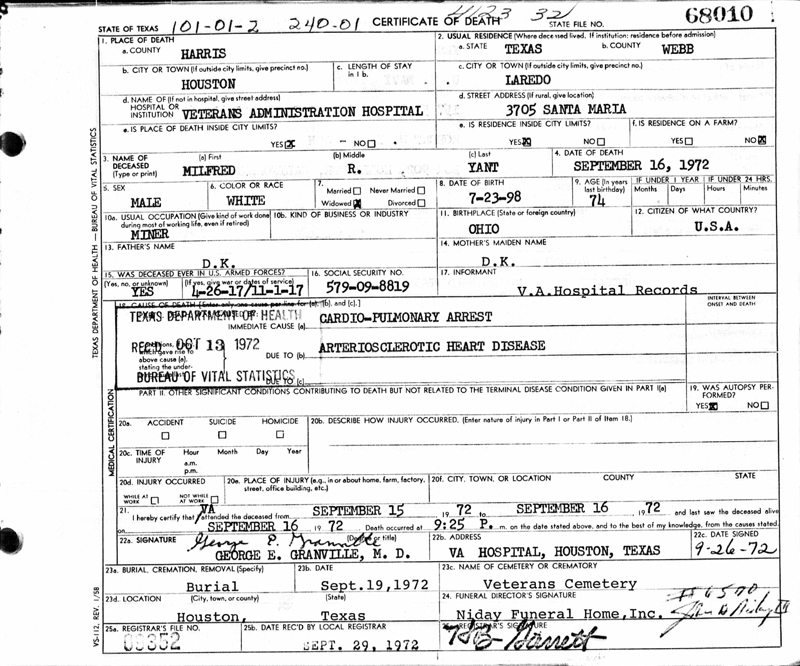 STATE OF TEXAS 101-01-2 240-01 CERTIFICATE OF DEATH 4123 32 STATE FILE NO. 68010
1. PLACE OF DEATH
a. COUNTY HARRIS
2. USUAL RESIDENCE (Where deceased lived. If institution: residence before admission)
a. STATE TEXAS b. COUNTY WEBB
b. CITY OR TOWN (If outside city limits, give precinct no.) HOUSTON
c. LENGTH OF STAY in 1 b.
c. CITY OR TOWN (If outside city limits, give precinct no.)
LAREDO
d. NAME OF (If not in hospital, give street address)
HOSPITAL OR INSTITUTION VETERANS ADMINISTRATION HOSPITAL
d. STREET ADDRESS (If rural, give location)
3705 SANTA MARIA
e. IS PLACE OF DEATH INSIDE CITY LIMITS?
YES NO
e. IS RESIDENCE INSIDE CITY LIMITS?
YES NO
f. IS RESIDENCE ON A FARM?
YES NO
3. NAME OF DECEASED (Type or print)
(a) First (b) Middle (c) Last
MILFRED R. YANT
4. DATE OF DEATH
SEPTEMBER 16, 1972
5. SEX
MALE
6. COLOR OR RACE
WHITE
7.
Married Never Married
Widowed Divorced
8. DATE OF BIRTH
7-23-98
9. AGE (In years last birthday)
74
IF UNDER 1 YEAR
Months Days
IF UNDER 24 HRS.
Hours Minutes
10a. USUAL OCCUPATION (Give kind of work done during most of working life, even if retired)
MINER
10b. KIND OF BUSINESS OR INDUSTRY
11. BIRTHPLACE (State or foreign country)
OHIO
12. CITIZEN OF WHAT COUNTRY?
U.S.A.
13. FATHER'S NAME
D.K.
14. MOTHER'S MAIDEN NAME
D.K.
15. WAS DECEASED EVER IN U.S. ARMED FORCES?
(Yes, no, or unknown) (If yes, give war or dates of service)
YES 4-26-17/11-1-17
16. SOCIAL SECURITY NO.
579-09-8819
17. INFORMANT
V.A.Hospital Records
18. CAUSE OF DEATH [Enter only one cause per line for (a), (b), and (c).]
INTERVAL BETWEEN ONSET AND DEATH
TEXAS DEPARTMENT OF HEALTH
IMMEDIATE CAUSE (a) CARDIO-PULMONARY ARREST
REC'D OCT 13 1972
Conditions, which gave rise to above cause (a), stating the under-
DUE TO (b) ARTERIOSCLEROTIC HEART DISEASE
BUREAU OF VITAL STATISTICS
DUE TO (c)
PART II. OTHER SIGNIFICANT CONDITIONS CONTRIBUTING TO DEATH BUT NOT RELATED TO THE TERMINAL DISEASE CONDITION GIVEN IN PART I(a)
19. WAS AUTOPSY PERFORMED?
YES NO
20a. ACCIDENT SUICIDE HOMICIDE
20b. DESCRIBE HOW INJURY OCCURRED. (Enter nature of injury in Part I or Part II of Item 18.)
20c. TIME OF INJURY Hour Month Day Year
a.m.
p.m.
20d. INJURY OCCURRED
WHILE AT WORK NOT WHILE AT WORK
20e. PLACE OF INJURY (e.g., in or about home, farm, factory, street, office building, etc.)
20f. CITY, TOWN, OR LOCATION COUNTY STATE
21. VA
I hereby certify that attended the deceased from SEPTEMBER 15 1972 to SEPTEMBER 16 1972 and last saw the deceased alive
on SEPTEMBER 16 1972 Death occurred at 9:25 P. m. on the date stated above, and to the best of my knowledge, from the causes stated.
22a. SIGNATURE George E. Granville (Degree or title)
GEORGE E. GRANVILLE, M. D.
22b. ADDRESS
VA HOSPITAL, HOUSTON, TEXAS
22c. DATE SIGNED
9-26-72
23a. BURIAL, CREMATION, REMOVAL (Specify)
Burial
23b. DATE
Sept.19,1972
23c. NAME OF CEMETERY OR CREMATORY
Veterans Cemetery
23d. LOCATION (City, town, or county) (State)
Houston, Texas
24. FUNERAL DIRECTOR'S SIGNATURE #6570
Niday Funeral Home,Inc.
25a. REGISTRAR'S FILE NO.
25b. DATE REC'D BY LOCAL REGISTRAR
SEPT. 29, 1972
REGISTRAR'S SIGNATURE
TEXAS DEPARTMENT OF HEALTH — BUREAU OF VITAL STATISTICS
MEDICAL CERTIFICATION
VS-112, REV. 1/58